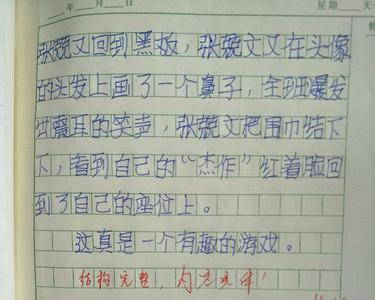 年 月 日 星期 天
张兢又回到黑板，张兢文又在头像
的头发上画了一个鼻子，全班爆发
洪震耳的笑声，张兢文把围巾结下
下，看到自己的“杰作”红着脸回
到了自己的座位上。
这真是一个有趣的游戏。
结构完整，内容具体！